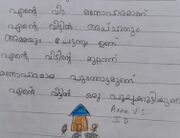 എന്റെ വീട് മനോഹരമാണ്
എന്റെ വീട്ടിൽ അച്ഛനും
അമ്മയും ചേട്ടനും ഉണ്ട്
എന്റെ വീട്ടിന്റെ മുറ്റത്ത്
മനോഹരമായ പൂന്തോട്ടമുണ്ട്
എന്റെ വീട്ടിൽ ഒരു പൂച്ചക്കുട്ടിയുണ്ട്
Anna V S